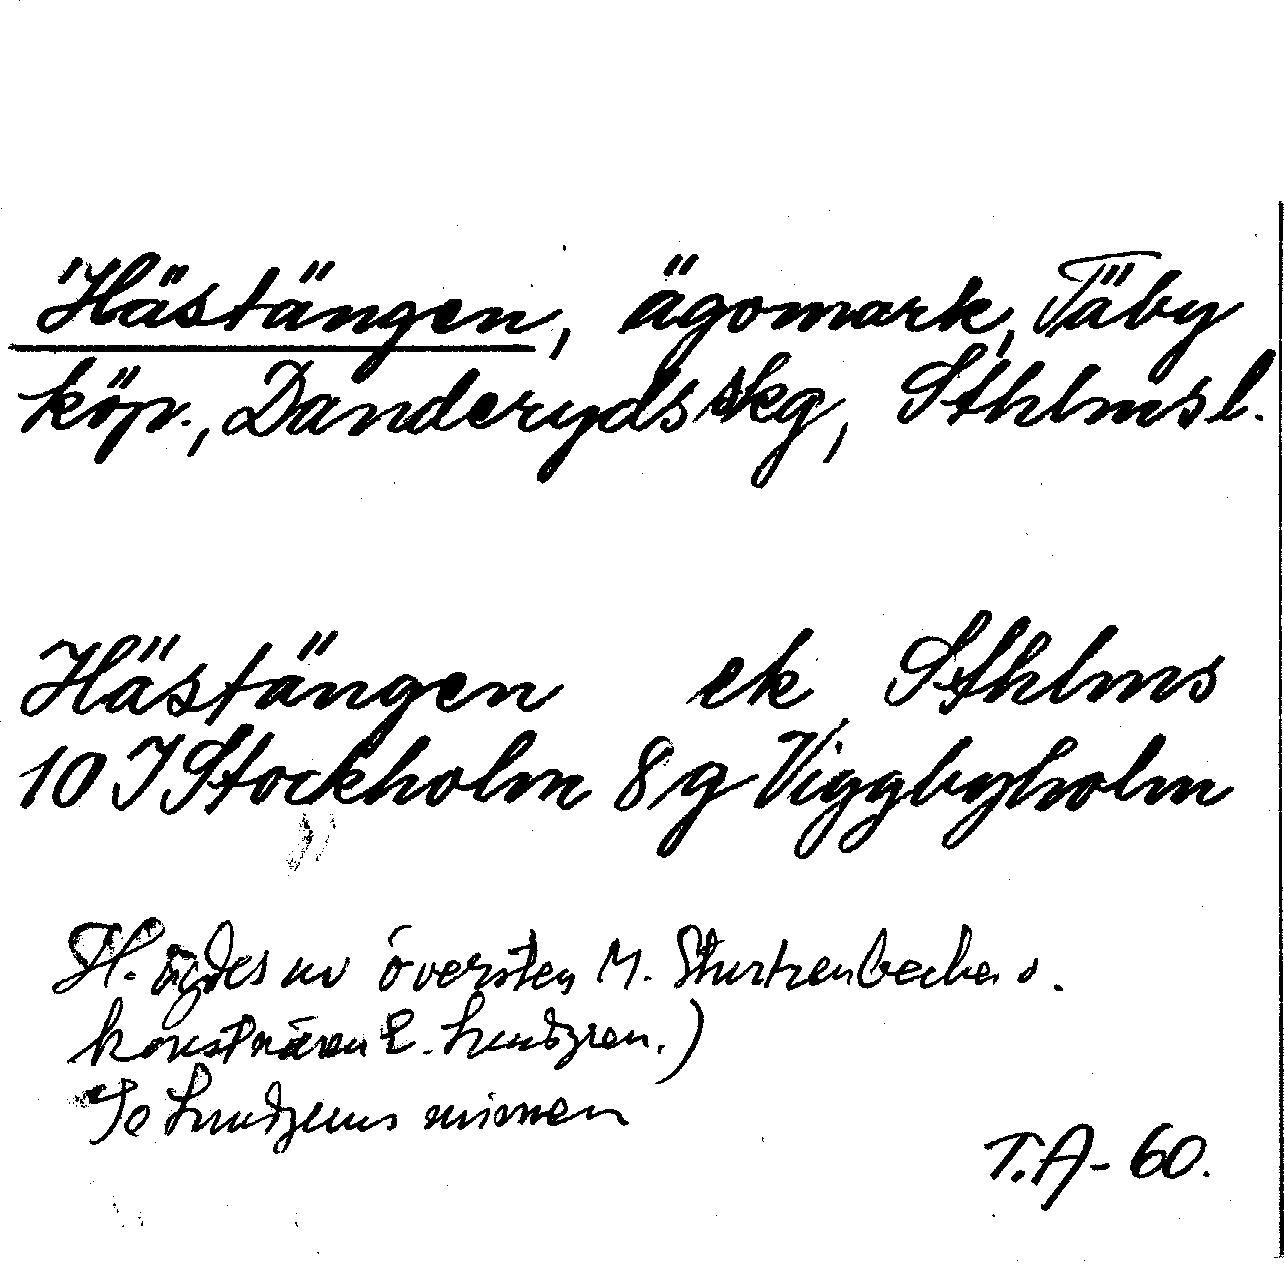 Hästängen, ägomark, Täby
köp., Danderyds skg, Sthlms l.
Hästängen ek Sthlms
10 I Stockholm 8 g Viggbyholm
H. ägdes av översten M. Sturtzenbecker o.
konstnären E. Lundgren.)
Se Lundgrens minnen
T.A-60.